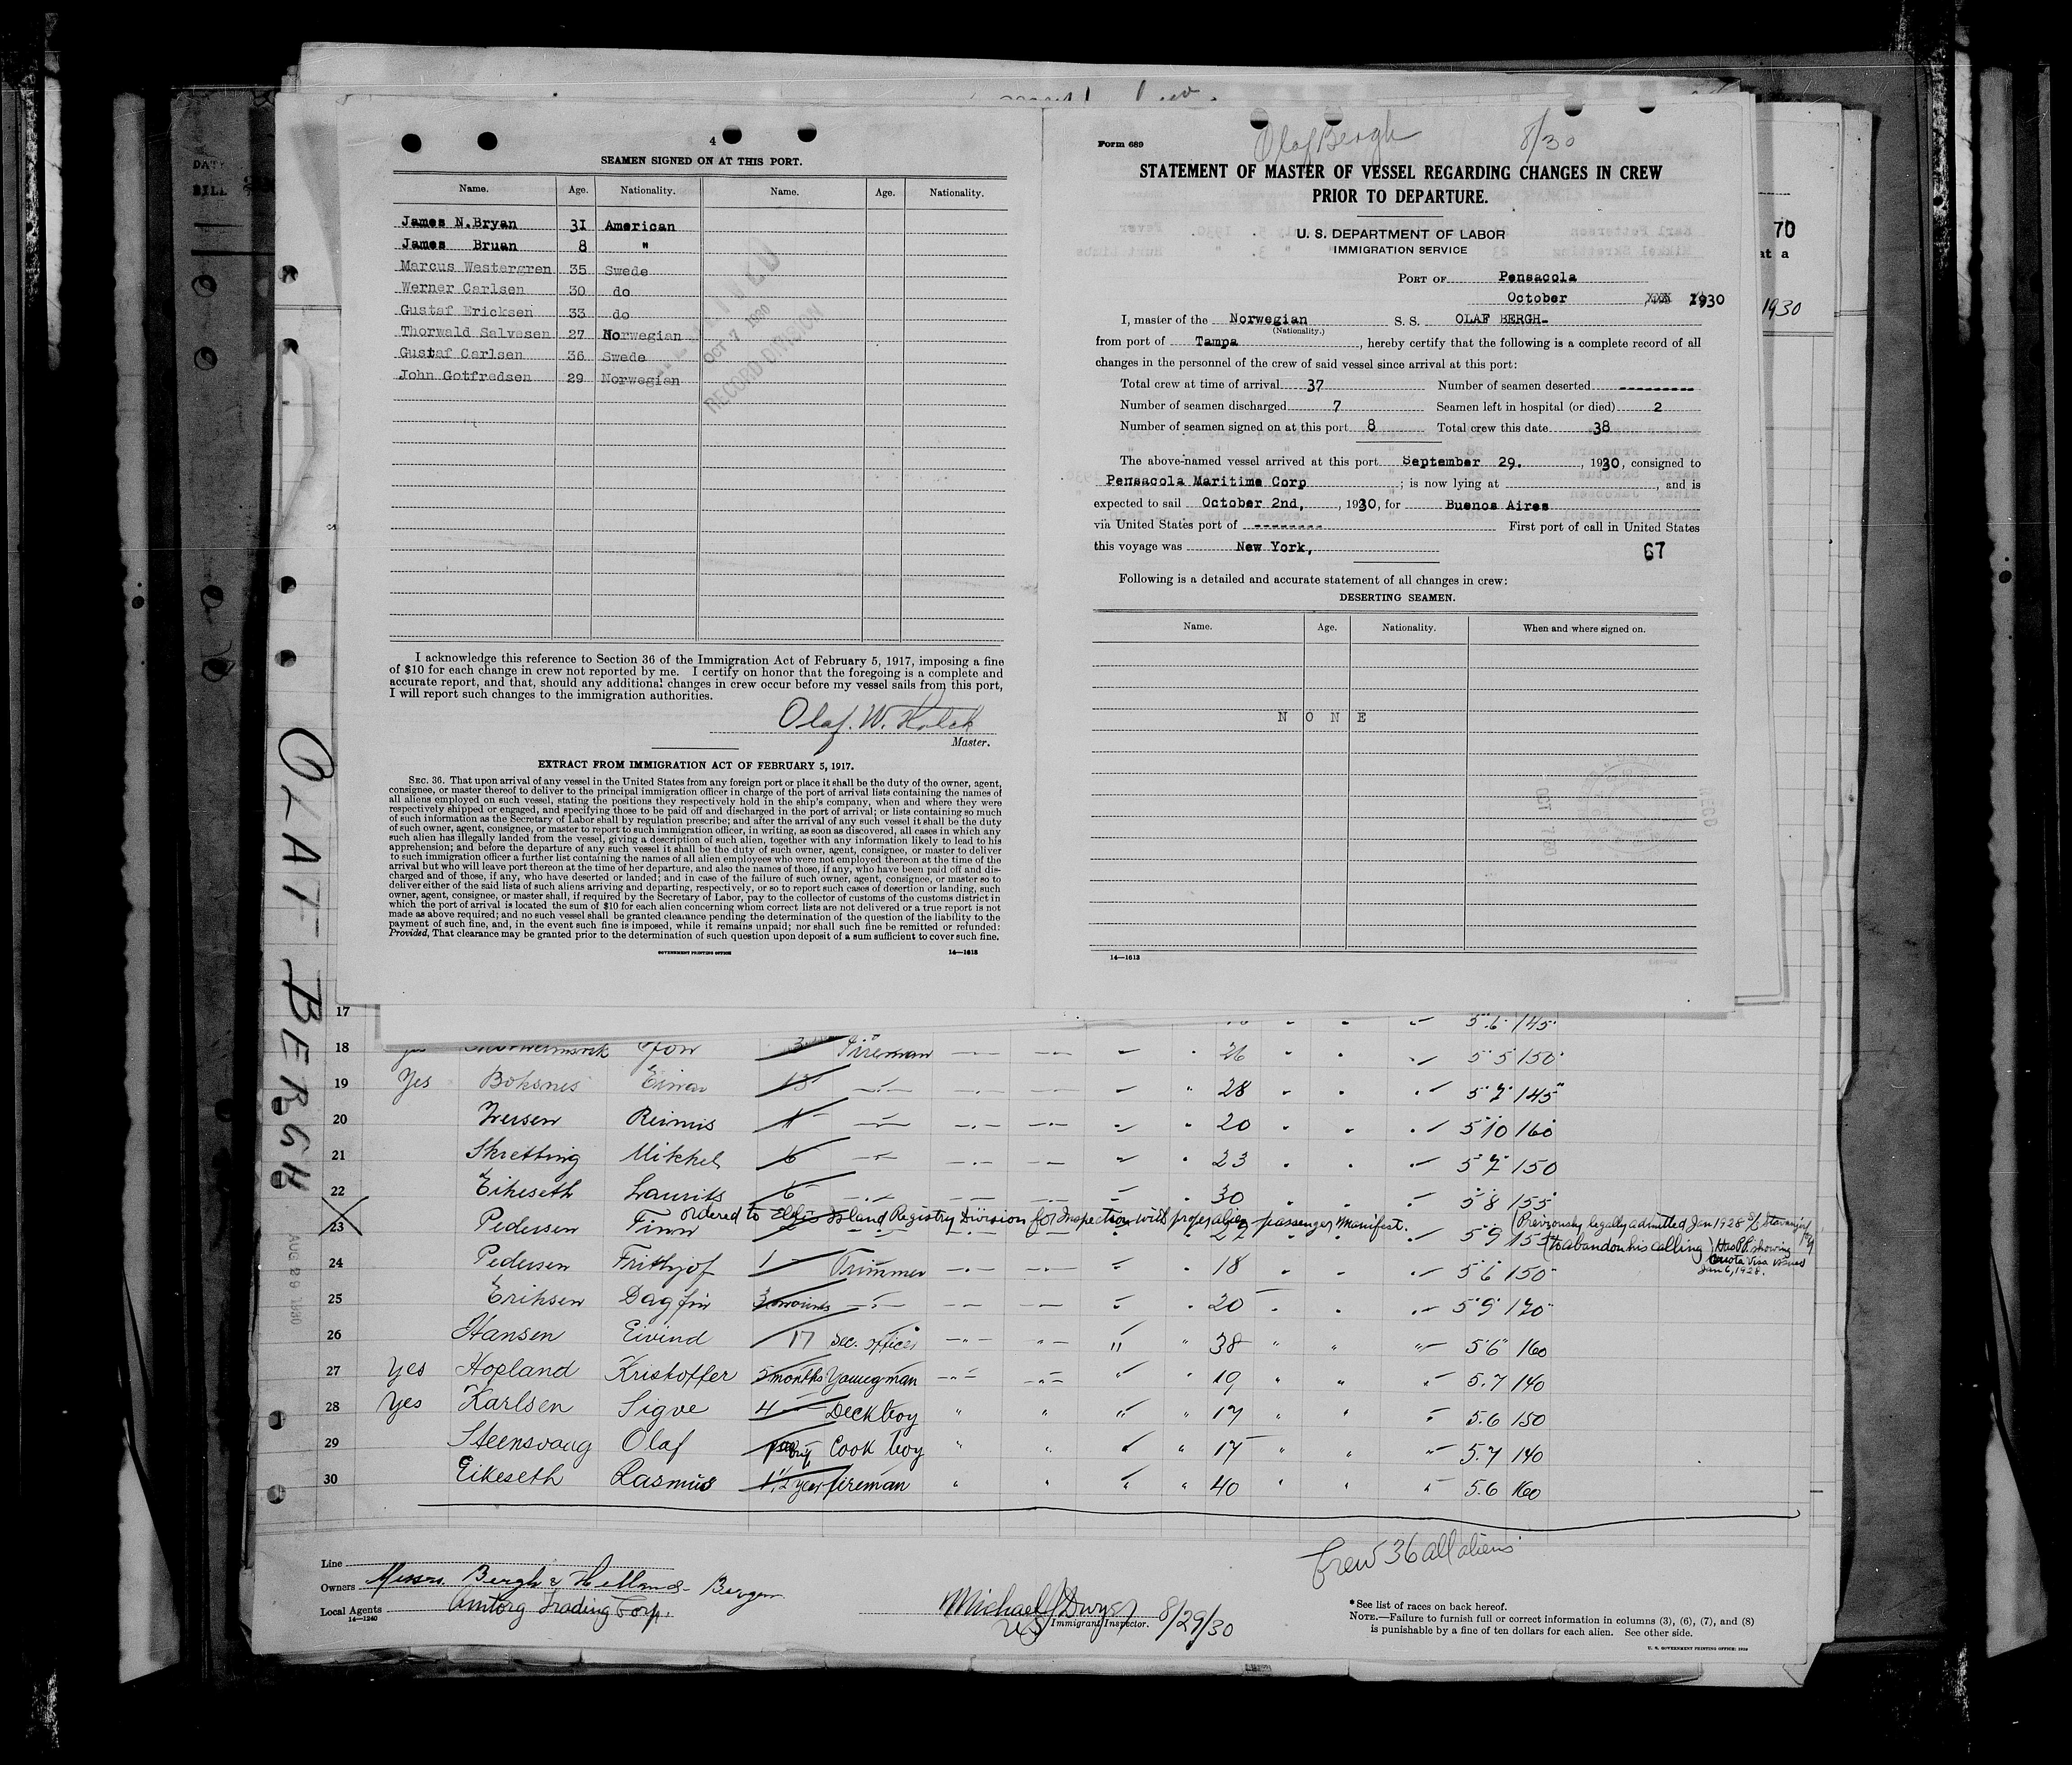 4
SEAMEN SIGNED ON AT THIS PORT.
Name. Age. Nationality. Name. Age. Nationality.
James N.Bryan 31 American
James Bruan 8 "
Marcus Westergren 35 Swede
Werner Carlsen 30 do
Gustaf Ericksen 33 do
Thorwald Salvesen 27 Norwegian
Gustaf Carlsen 36 Swede
John Gotfredsen 29 Norwegian
OCT 7 1930
RECORD DIVISION
I acknowledge this reference to Section 36 of the Immigration Act of February 5, 1917, imposing a fine
of $10 for each change in crew not reported by me. I certify on honor that the foregoing is a complete and
accurate report, and that, should any additional changes in crew occur before my vessel sails from this port,
I will report such changes to the immigration authorities.
Olaf. W. Holch
Master.
EXTRACT FROM IMMIGRATION ACT OF FEBRUARY 5, 1917.
SEC. 36. That upon arrival of any vessel in the United States from any foreign port or place it shall be the duty of the owner, agent,
consignee, or master thereof to deliver to the principal immigration officer in charge of the port of arrival lists containing the names of
all aliens employed on such vessel, stating the positions they respectively hold in the ship's company, when and where they were
respectively shipped or engaged, and specifying those to be paid off and discharged in the port of arrival; or lists containing so much
of such information as the Secretary of Labor shall by regulation prescribe; and after the arrival of any such vessel it shall be the duty
of such owner, agent, consignee, or master to report to such immigration officer, in writing, as soon as discovered, all cases in which any
such alien has illegally landed from the vessel, giving a description of such alien, together with any information likely to lead to his
apprehension; and before the departure of any such vessel it shall be the duty of such owner, agent, consignee, or master to deliver
to such immigration officer a further list containing the names of all alien employees who were not employed thereon at the time of the
arrival but who will leave port thereon at the time of her departure, and also the names of those, if any, who have been paid off and dis-
charged and of those, if any, who have deserted or landed; and in case of the failure of such owner, agent, consignee, or master so to
deliver either of the said lists of such aliens arriving and departing, respectively, or so to report such cases of desertion or landing, such
owner, agent, consignee, or master shall, if required by the Secretary of Labor, pay to the collector of customs of the customs district in
which the port of arrival is located the sum of $10 for each alien concerning whom correct lists are not delivered or a true report is not
made as above required; and no such vessel shall be granted clearance pending the determination of the question of the liability to the
payment of such fine, and, in the event such fine is imposed, while it remains unpaid; nor shall such fine be remitted or refunded:
Provided, That clearance may be granted prior to the determination of such question upon deposit of a sum sufficient to cover such fine.
GOVERNMENT PRINTING OFFICE 14—1613
Olaf Bergh 8/30
Form 689
STATEMENT OF MASTER OF VESSEL REGARDING CHANGES IN CREW
PRIOR TO DEPARTURE.
U. S. DEPARTMENT OF LABOR
IMMIGRATION SERVICE
PORT OF Pensacola
October 1930
I, master of the Norwegian S. S. OLAF BERGH-
(Nationality.)
from port of Tampa, hereby certify that the following is a complete record of all
changes in the personnel of the crew of said vessel since arrival at this port:
Total crew at time of arrival 37 Number of seamen deserted ---------
Number of seamen discharged 7 Seamen left in hospital (or died) 2
Number of seamen signed on at this port 8 Total crew this date 38
The above-named vessel arrived at this port September 29. , 1930, consigned to
Pensacola Maritime Corp ; is now lying at , and is
expected to sail October 2nd, , 1930, for Buenos Aires
via United States port of -------- First port of call in United States
this voyage was New York,
67
Following is a detailed and accurate statement of all changes in crew:
DESERTING SEAMEN.
Name. Age. Nationality. When and where signed on.
N O N E
14—1613
70
at a
1930
OLAF BERGH
AUG 29 1930
17 5.6 145
18 Fireman 26 5 5 150
19 Yes Boksnes Einar 28 5 7 145
20 20 5 10 160
21 Skretting Mikkel 6 23 5 7 150
22 Eikeseth Laurits 6 30 5 8 155
ordered to Ellis Island Registry Division for Inspection with proper alien passenger Manifest.
23 Pedersen Finn 27 5 9 155
(Previously legally admitted Jan 1928 S/S Stavangerfjord
to abandon his calling) Has P.P. showing
Quota Visa issued
Jan 6, 1928.
24 Pedersen Frithjof 1 Trimmer 18 5 6 150
25 Eriksen Dagfin 3 months 20 5 9 170
26 Hansen Eivind 17 Sec. officer 38 5 6 160
27 Yes Hopland Kristoffer 5 months Youngman 19 5.7 140
28 Yes Karlsen Sigve 4 Deckboy 17 5.6 150
29 Steensvaag Olaf Cook boy 17 5.7 140
30 Eikeseth Rasmus 1 1/2 year fireman 40 5.6 160
Crew 36 all aliens
Line
Owners Messrs. Bergh & Helland - Bergen
Local Agents Amtorg Trading Corp.
14—1240
Michael J Dwyer 8/29/30
U.S. Immigrant Inspector.
* See list of races on back hereof.
NOTE.—Failure to furnish full or correct information in columns (3), (6), (7), and (8)
is punishable by a fine of ten dollars for each alien. See other side.
U. S. GOVERNMENT PRINTING OFFICE: 1930